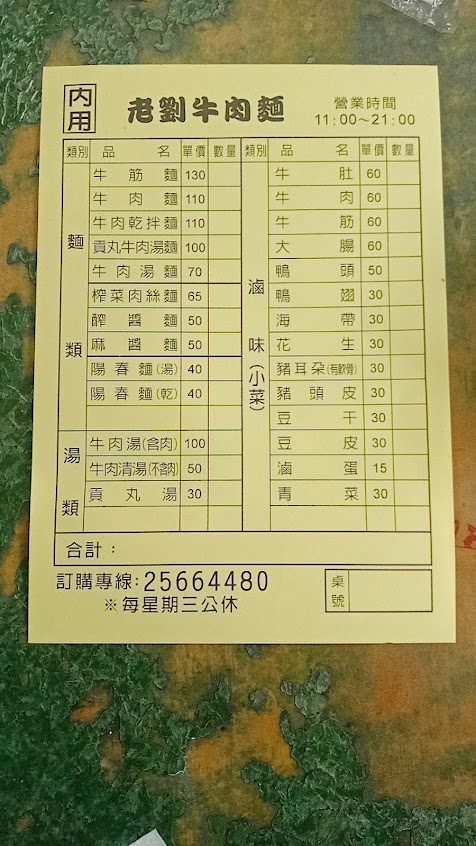 內用
老劉牛肉麵
營業時間
11:00~21:00
類別 品名 單價 數量 類別 品名 單價 數量
麵類
牛筋麵 130
牛肉麵 110
牛肉乾拌麵 110
貢丸牛肉湯麵 100
牛肉湯麵 70
榨菜肉絲麵 65
醡醬麵 50
麻醬麵 50
陽春麵(湯) 40
陽春麵(乾) 40
湯類
牛肉湯(含肉) 100
牛肉清湯(不含肉) 50
貢丸湯 30
滷味(小菜)
牛肚 60
牛肉 60
牛筋 60
大腸 60
鴨頭 50
鴨翅 30
海帶 30
花生 30
豬耳朵(有軟骨) 30
豬頭皮 30
豆干 30
豆皮 30
滷蛋 15
青菜 30
合計：
訂購專線:25664480
※每星期三公休
桌號